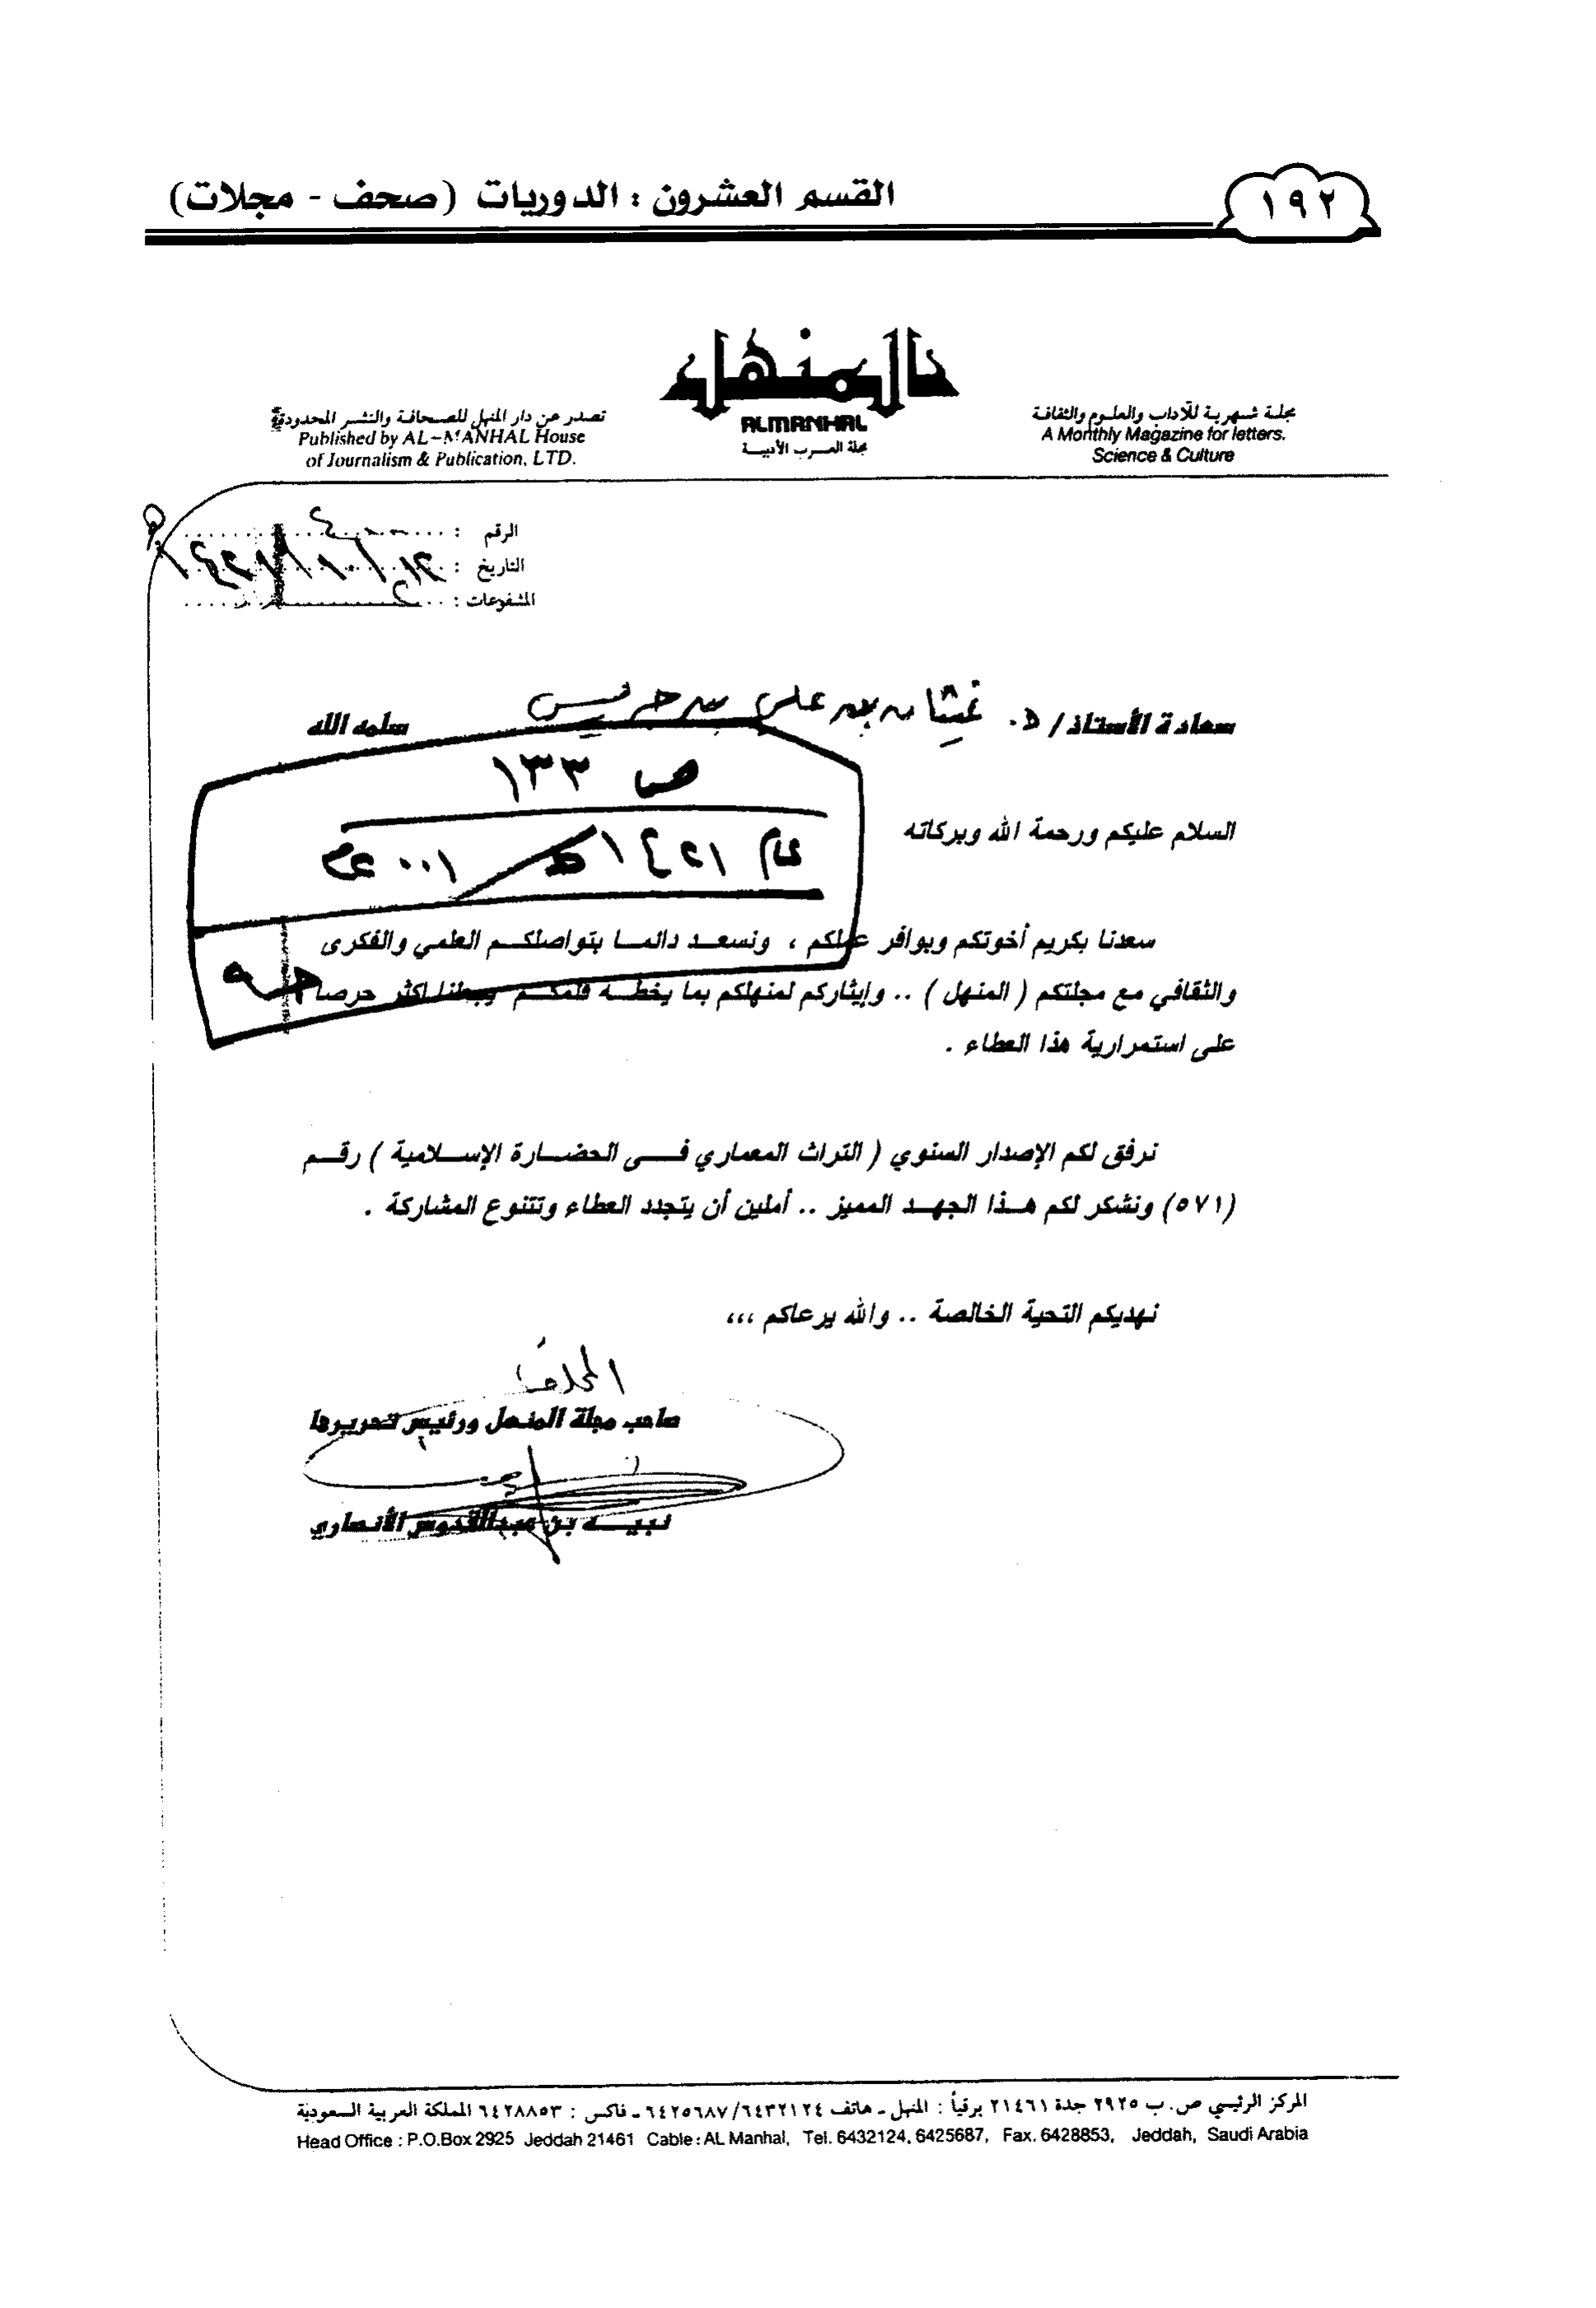 ١٩٢
القسم العشرون : الدوريات (صحف - مجلات)
المنهل
ALMANHAL
مجلة العرب الأدبية
مجلة شهرية للآداب والعلوم والثقافة
A Monthly Magazine for letters.
Science & Culture
تصدر عن دار المنهل للصحافة والنشر المحدودة
Published by AL-MANHAL House
of Journalism & Publication, LTD.
الرقم :
التاريخ :
المشفوعات :
سعادة الأستاذ/ د. غيثان بن علي بن جريس سلمه الله
ص ١٣٣
عام ١٤٢١هـ / ٢٠٠١م
السلام عليكم ورحمة الله وبركاته
سعدنا بكريم أخوتكم وبوافر عملكم ، ونسعد دائما بتواصلكم العلمي والفكرى
والثقافي مع مجلتكم ( المنهل ) .. وإيثاركم لمنهلكم بما يخطه قلمكم ويجعلنا اكثر حرصا
على استمرارية هذا العطاء .
نرفق لكم الإصدار السنوي ( التراث المعماري فى الحضارة الإسلامية ) رقم
(٥٧١) ونشكر لكم هذا الجهد المميز .. أملين أن يتجدد العطاء وتتنوع المشاركة .
نهديكم التحية الخالصة .. والله يرعاكم ،،،
صاحب مجلة المنهل ورئيس تحريرها
نبيه بن عبدالقدوس الأنصاري
المركز الرئيسي ص. ب ٢٩٢٥ جدة ٢١٤٦١ برقياً : المنهل ـ هاتف ٦٤٣٢١٢٤/ ٦٤٢٥٦٨٧ ـ فاكس : ٦٤٢٨٨٥٣ المملكة العربية السعودية
Head Office : P.O.Box 2925 Jeddah 21461 Cable : AL Manhal, Tel. 6432124, 6425687, Fax. 6428853, Jeddah, Saudi Arabia